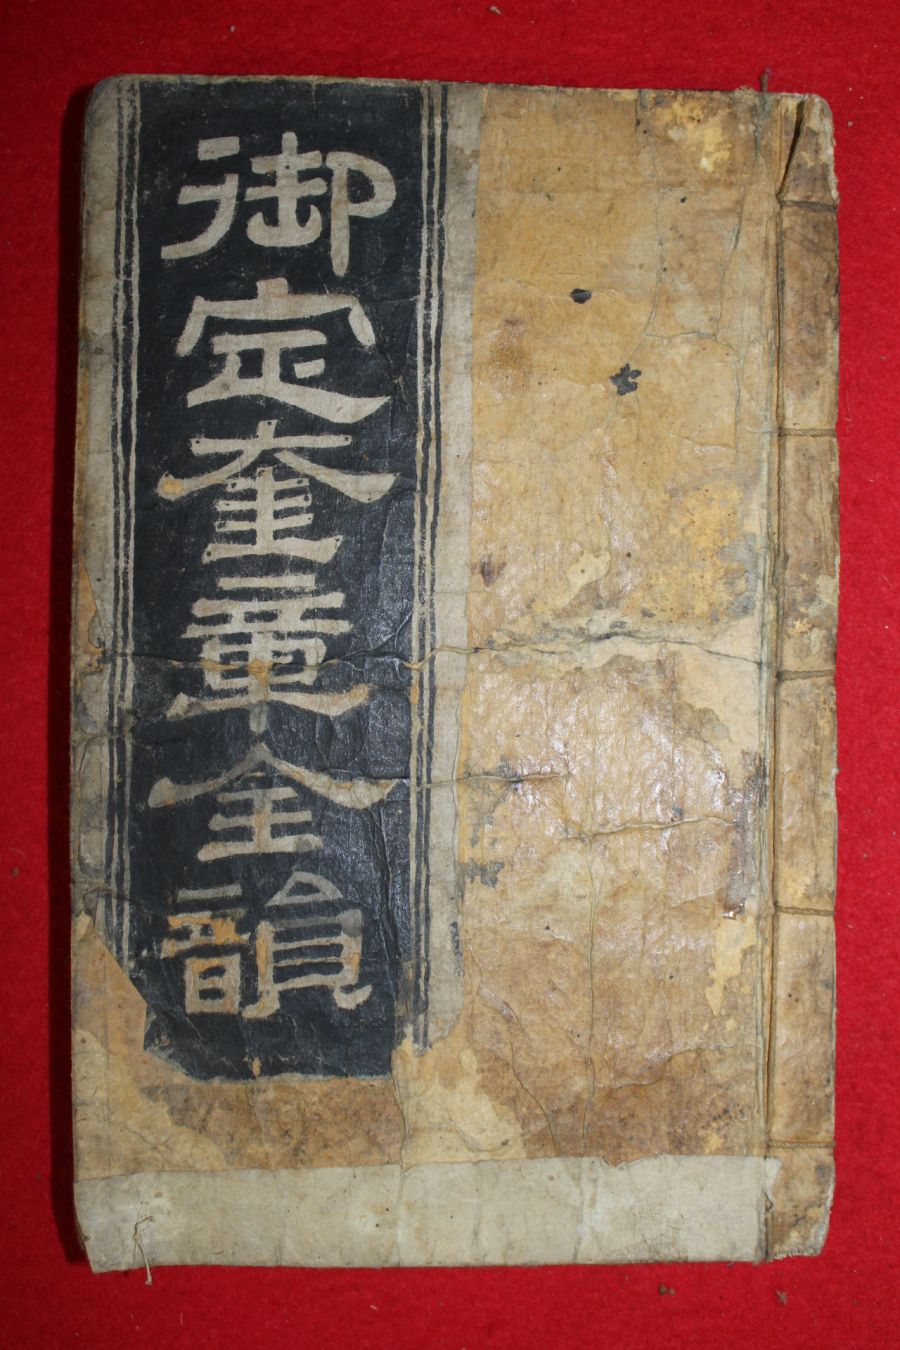 御定奎章全韻